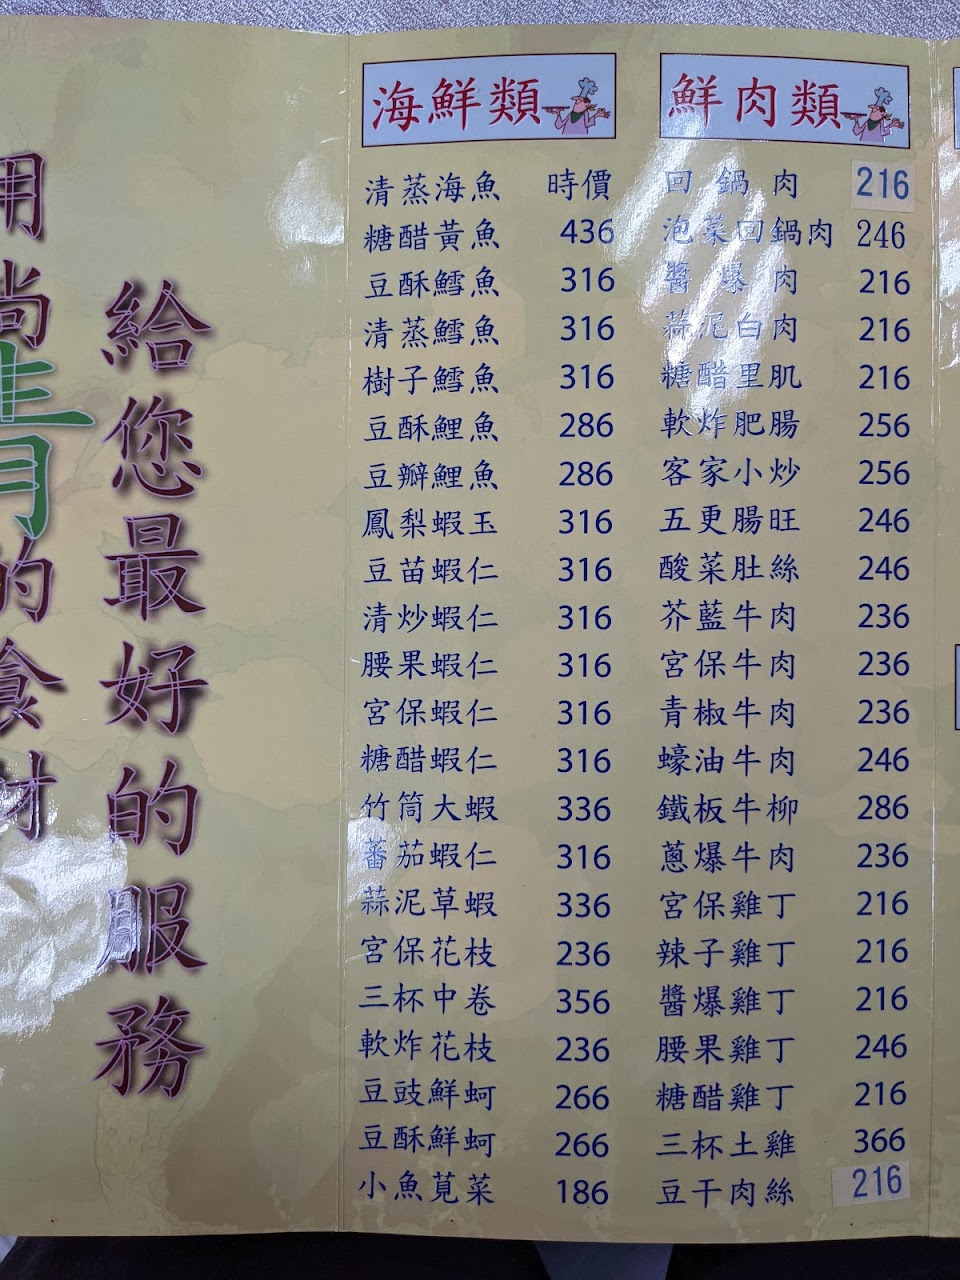 海鮮類
清蒸海魚 時價
糖醋黃魚 436
豆酥鱈魚 316
清蒸鱈魚 316
樹子鱈魚 316
豆酥鯉魚 286
豆瓣鯉魚 286
鳳梨蝦玉 316
豆苗蝦仁 316
清炒蝦仁 316
腰果蝦仁 316
宮保蝦仁 316
糖醋蝦仁 316
竹筒大蝦 336
蕃茄蝦仁 316
蒜泥草蝦 336
宮保花枝 236
三杯中卷 356
軟炸花枝 236
豆豉鮮蚵 266
豆酥鮮蚵 266
小魚莧菜 186
鮮肉類
回鍋肉 216
泡菜回鍋肉 246
醬爆肉 216
蒜泥白肉 216
糖醋里肌 216
軟炸肥腸 256
客家小炒 256
五更腸旺 246
酸菜肚絲 246
芥藍牛肉 236
宮保牛肉 236
青椒牛肉 236
蠔油牛肉 246
鐵板牛柳 286
蔥爆牛肉 236
宮保雞丁 216
辣子雞丁 216
醬爆雞丁 216
腰果雞丁 246
糖醋雞丁 216
三杯土雞 366
豆干肉絲 216
用尚青的食材
給您最好的服務